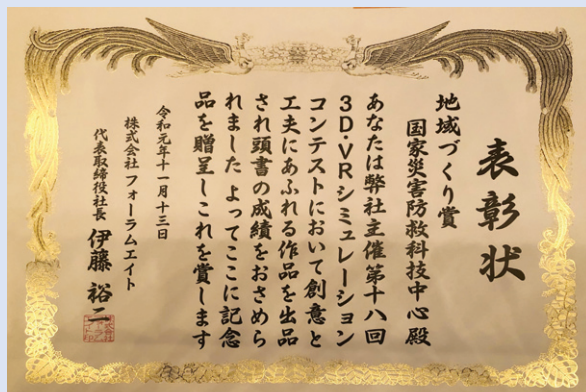 表彰状
地域づくり賞
国家災害防救科技中心殿
あなたは弊社主催第十八回
3D・VRシミュレーション
コンテストにおいて創意と
工夫にあふれる作品を出品
され頭書の成績をおさめら
れました よってここに記念
品を贈呈しこれを賞します
令和元年十一月十三日
株式会社 フォーラムエイト
代表取締役社長 伊藤 裕二